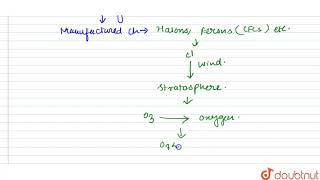 Manufactured ch → Halons, ferons (CFCs) etc.
Cl
wind.
Stratosphere.
O3 → oxygen.
doubtnut